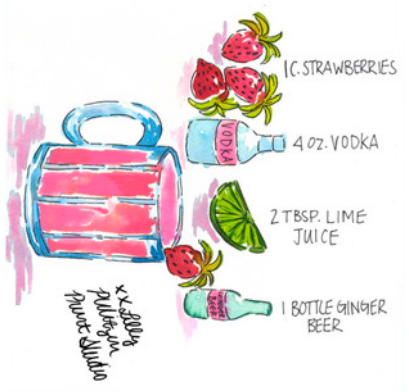 1 C. STRAWBERRIES
VODKA
4 OZ. VODKA
2 TBSP. LIME
JUICE
GINGER
BEER
1 BOTTLE GINGER
BEER
xx Lilly
Pulitzer
Print Studio